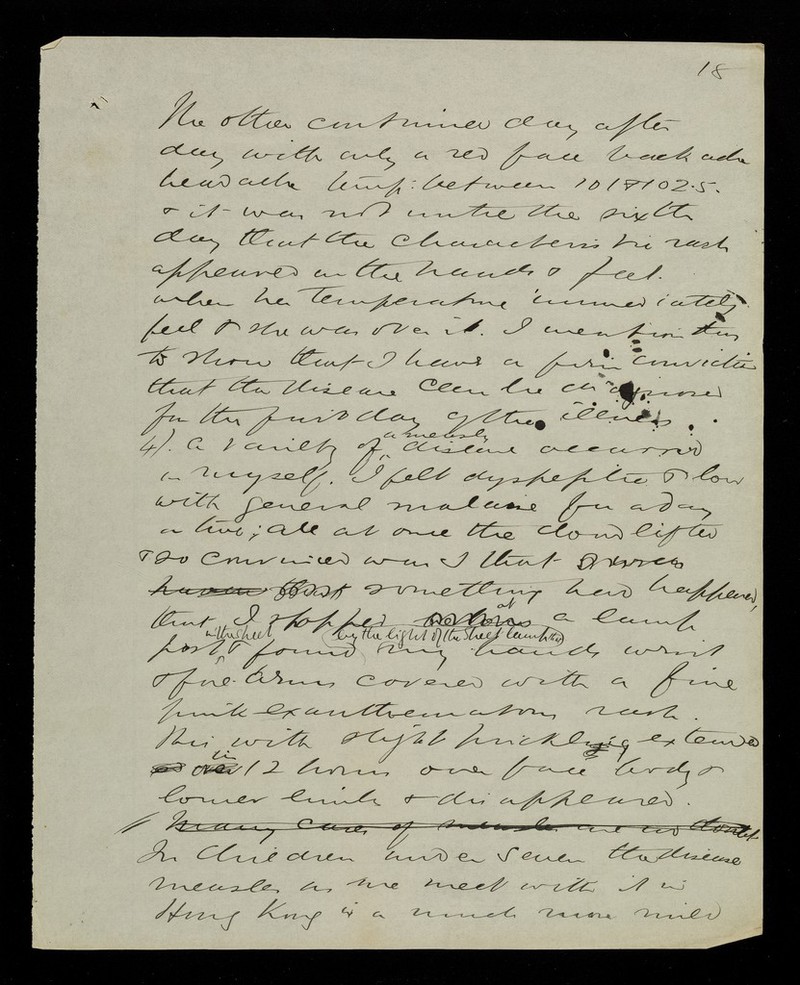 18
The other continued day after
day with only a red face backache
headache temp: between 101 & 102.5.
& it was not until the sixth
day that the characteristic rash
appeared on the hands & feet.
when her temperature immediately
fell & she was over it. I mention this
to show that I have a firm conviction
that the disease can be diagnosed
for the first day of the illness.
4). A variety of a measly disease occurred
in myself. I felt dyspeptic & low
with general malaise for a day
or two; all at once the cloud lifted
& so convinced was I that
something had happened,
that I stopped at a lamp
post in the street & found (by the light of the street lamp) my hands wrist
& fore-arms covered with a fine
pink exanthematous rash.
This with slight prickling extended
in 12 hours over face body &
lower limbs & disappeared.
Many cases of measles are no doubt
In Children under seven the disease
measles as we meet with it in
Hong Kong is a much more mild